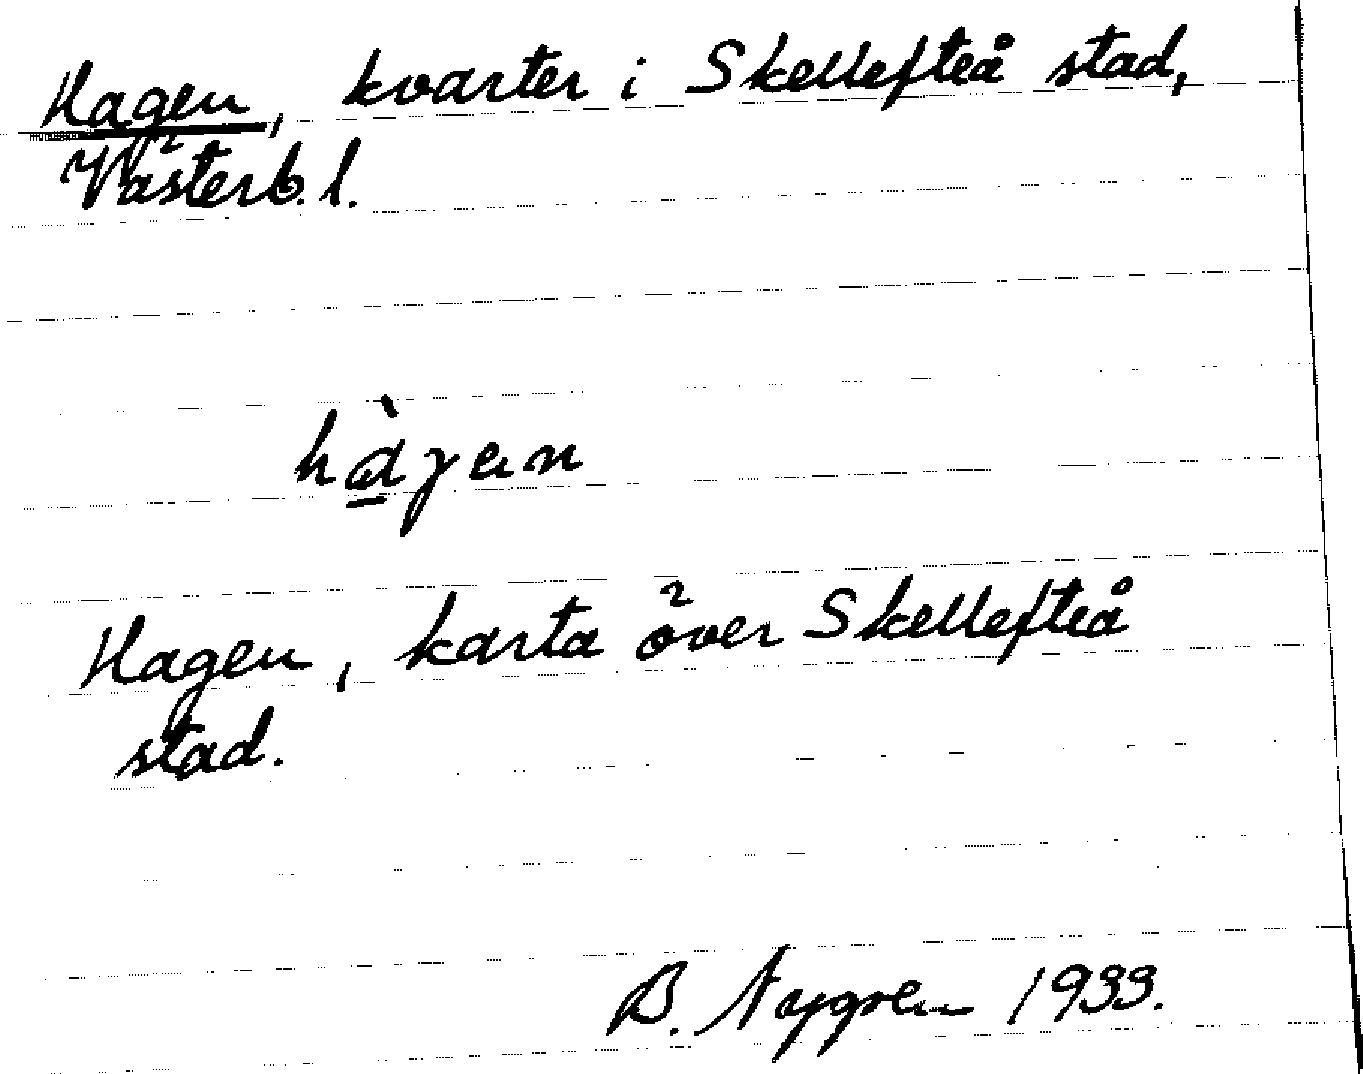 Hagen, kvarter i Skellefteå stad,
Västerb. l.
hàgen
Hagen, karta över Skellefteå
stad.
B. Nygren 1933.